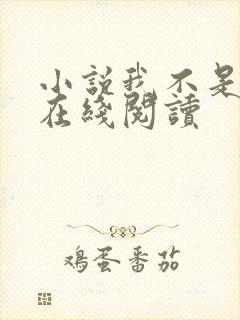 小说我不是
在綫閱讀
鸡蛋番茄